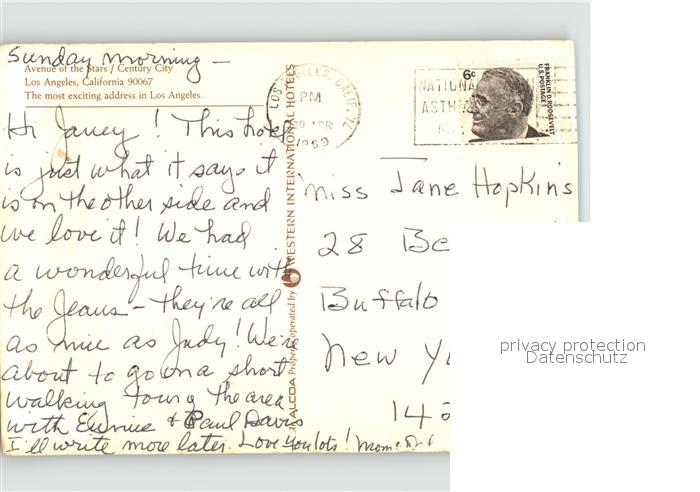 Sunday morning —
Avenue of the Stars / Century City
Los Angeles, California 90067
The most exciting address in Los Angeles.
Hi Janey! This hotel
is just what it says it
is on the other side and
we love it! We had
a wonderful time with
the Jeans - they're all
as nice as Judy! We're
about to go on a short
walking tour of the area
with Eunice & Paul Davis
I'll write more later. Love you lots! Mom &
ALCOA Property operated by WESTERN INTERNATIONAL HOTELS
LOS ANGELES, CALIF.
PM
20 APR
1969
NATIONA
ASTH
6c
FRANKLIN D. ROOSEVELT
U.S. POSTAGE
Miss Jane Hopkins
28 Be
Buffalo
New Yo
142
privacy protection
Datenschutz